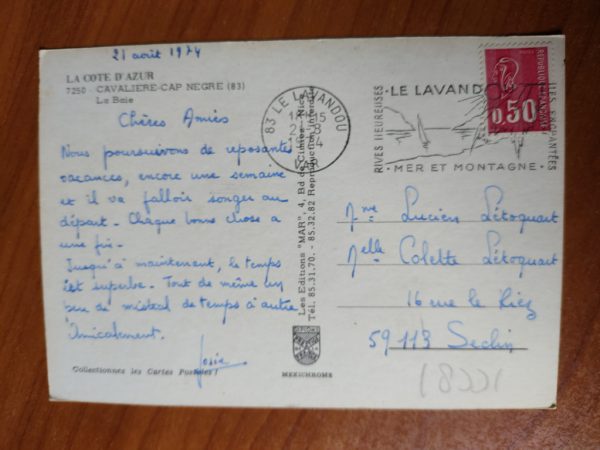 21 août 1974
LA COTE D'AZUR
7250 - CAVALIERE-CAP NEGRE (83)
La Baie
Chères Amies
Nous poursuivons de reposantes
vacances, encore une semaine
et il va falloir songer au
départ - Chaque bonne chose a
une fin -
Jusqu'à maintenant, le temps
est superbe - Tout de même un
peu de mistral de temps à autre
Amicalement.
Josie
Collectionnez les Cartes Postales !
Les Editions "MAR", 4, Bd de Cimiez - Nice
Tél. 85.31.70. - 85.32.82 Reproduction interdite
MEXICHROME
83 LE LAVANDOU
VAR
RIVES HEUREUSES
LE LAVANDOU
ILES ENCHANTÉES
MER ET MONTAGNE
REPUBLIQUE FRANÇAISE
0,50
Mme Lucien Létoquart
Melle Colette Létoquart
16 rue le Riez
59113 Seclin